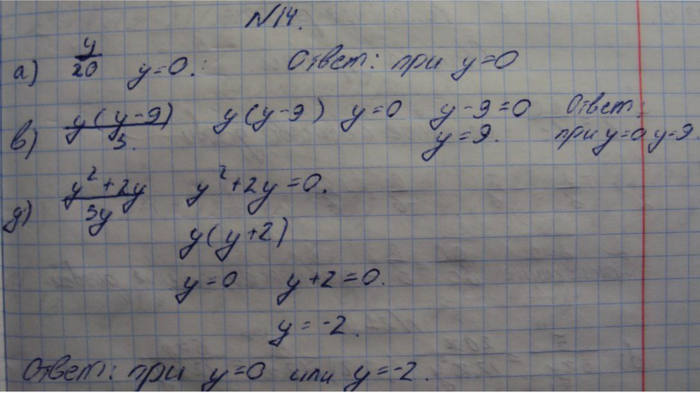 N14.
а) y/20 y=0. Ответ: при y=0
в) y(y-9)/3. y(y-9) y=0 y-9=0 Ответ:
y=9. при y=0 y=9.
д) y²+2y/3y y²+2y=0.
y(y+2)
y=0 y+2=0.
y=-2.
Ответ: при y=0 или y=-2.